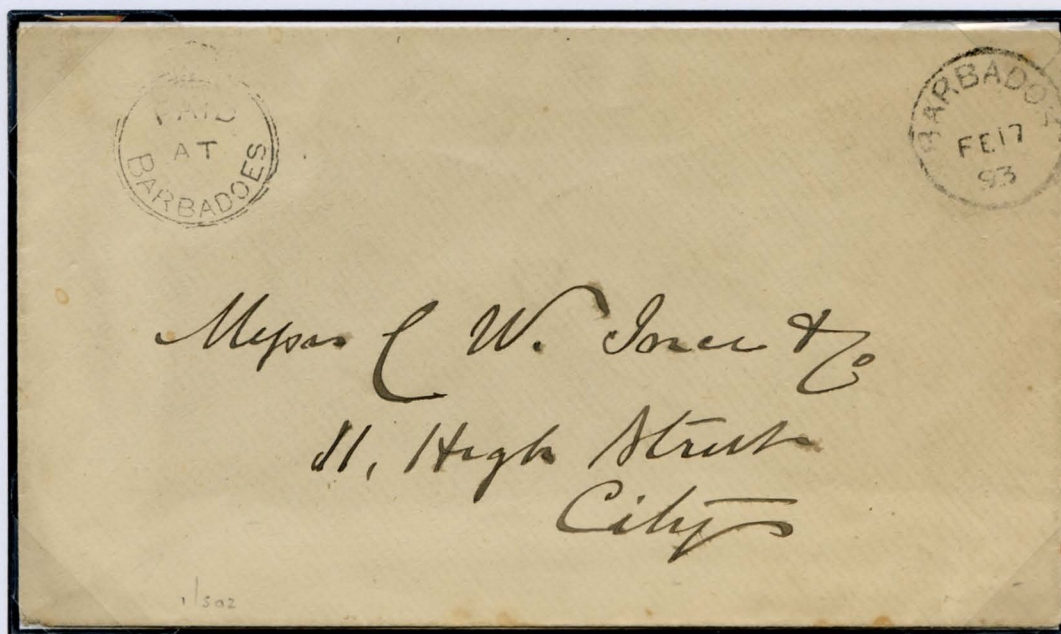 PAID
AT
BARBADOES
BARBADOES
FE 17
93
Messrs C W. Ince & Co
11, High Street
City
1/502